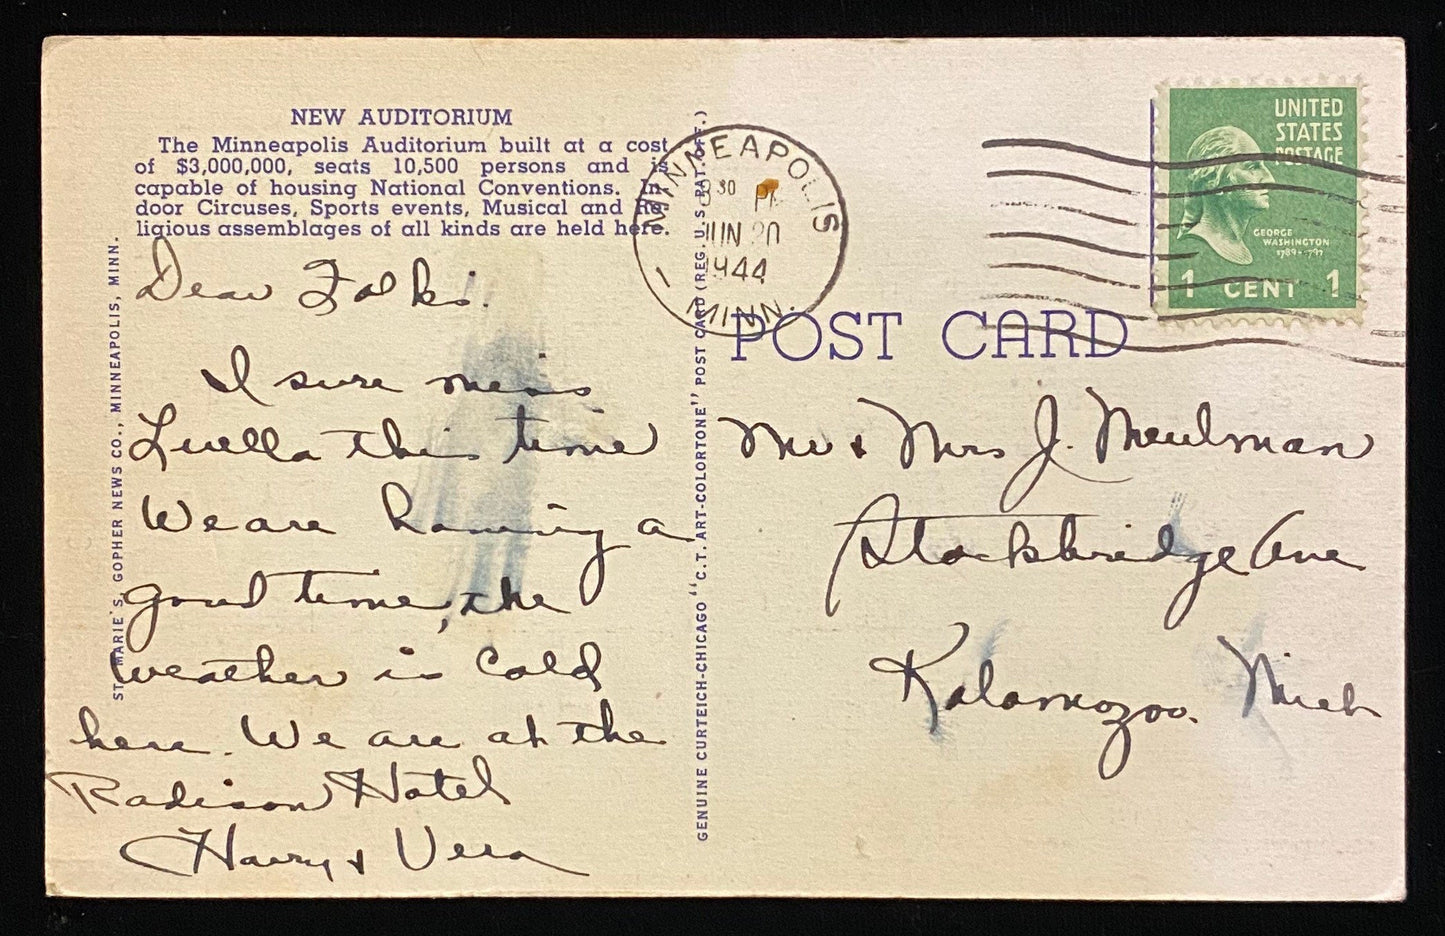 NEW AUDITORIUM
The Minneapolis Auditorium built at a cost
of $3,000,000, seats 10,500 persons and is
capable of housing National Conventions. In-
door Circuses, Sports events, Musical and Re-
ligious assemblages of all kinds are held here.
Dear Folks.
I sure miss
Luella this time
We are having a
good time, the
weather is cold
here. We are at the
Radison Hotel
Harry & Vera
ST. MARIE'S GOPHER NEWS CO., MINNEAPOLIS, MINN.
GENUINE CURTEICH-CHICAGO "C.T. ART-COLORTONE" POST CARD (REG. U.S. PAT. OFF.)
MINNEAPOLIS
30 PM
JUN 20
1944
MINN.
UNITED
STATES
POSTAGE
GEORGE
WASHINGTON
1789-1797
1 CENT 1
POST CARD
Mr & Mrs J. Meulman
Stockbridge Ave
Kalamozoo. Mich